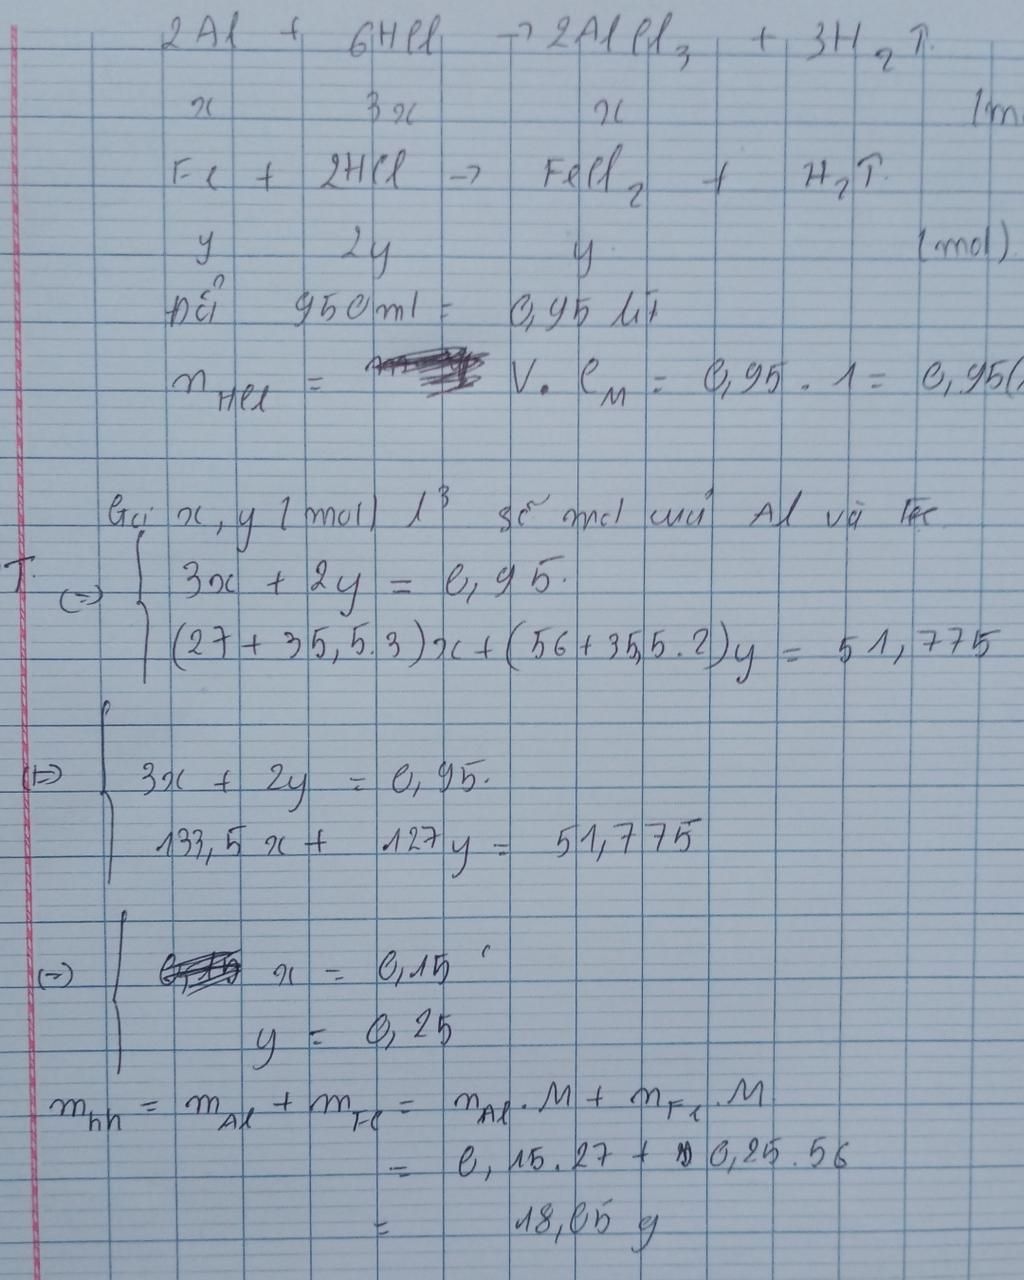 2Al + 6HCl → 2AlCl3 + 3H2↑
x 3x x (m
Fe + 2HCl → FeCl2 + H2↑
y 2y y (mol)
Đổi 950ml = 0,95 lít
nHCl = V. CM = 0,95 . 1 = 0,95(
Gọi x, y (mol) l³ số mol của Al và Fe
(=) 3x + 2y = 0,95.
(27 + 35,5.3)x + (56 + 35,5.2)y = 51,775
(=) 3x + 2y = 0,95.
133,5 x + 127y = 51,775
(=) x = 0,15
y = 0,25
mhh = mAl + mFe = nAl.M + nFe.M
= 0,15.27 + 0,25.56
= 18,05 g